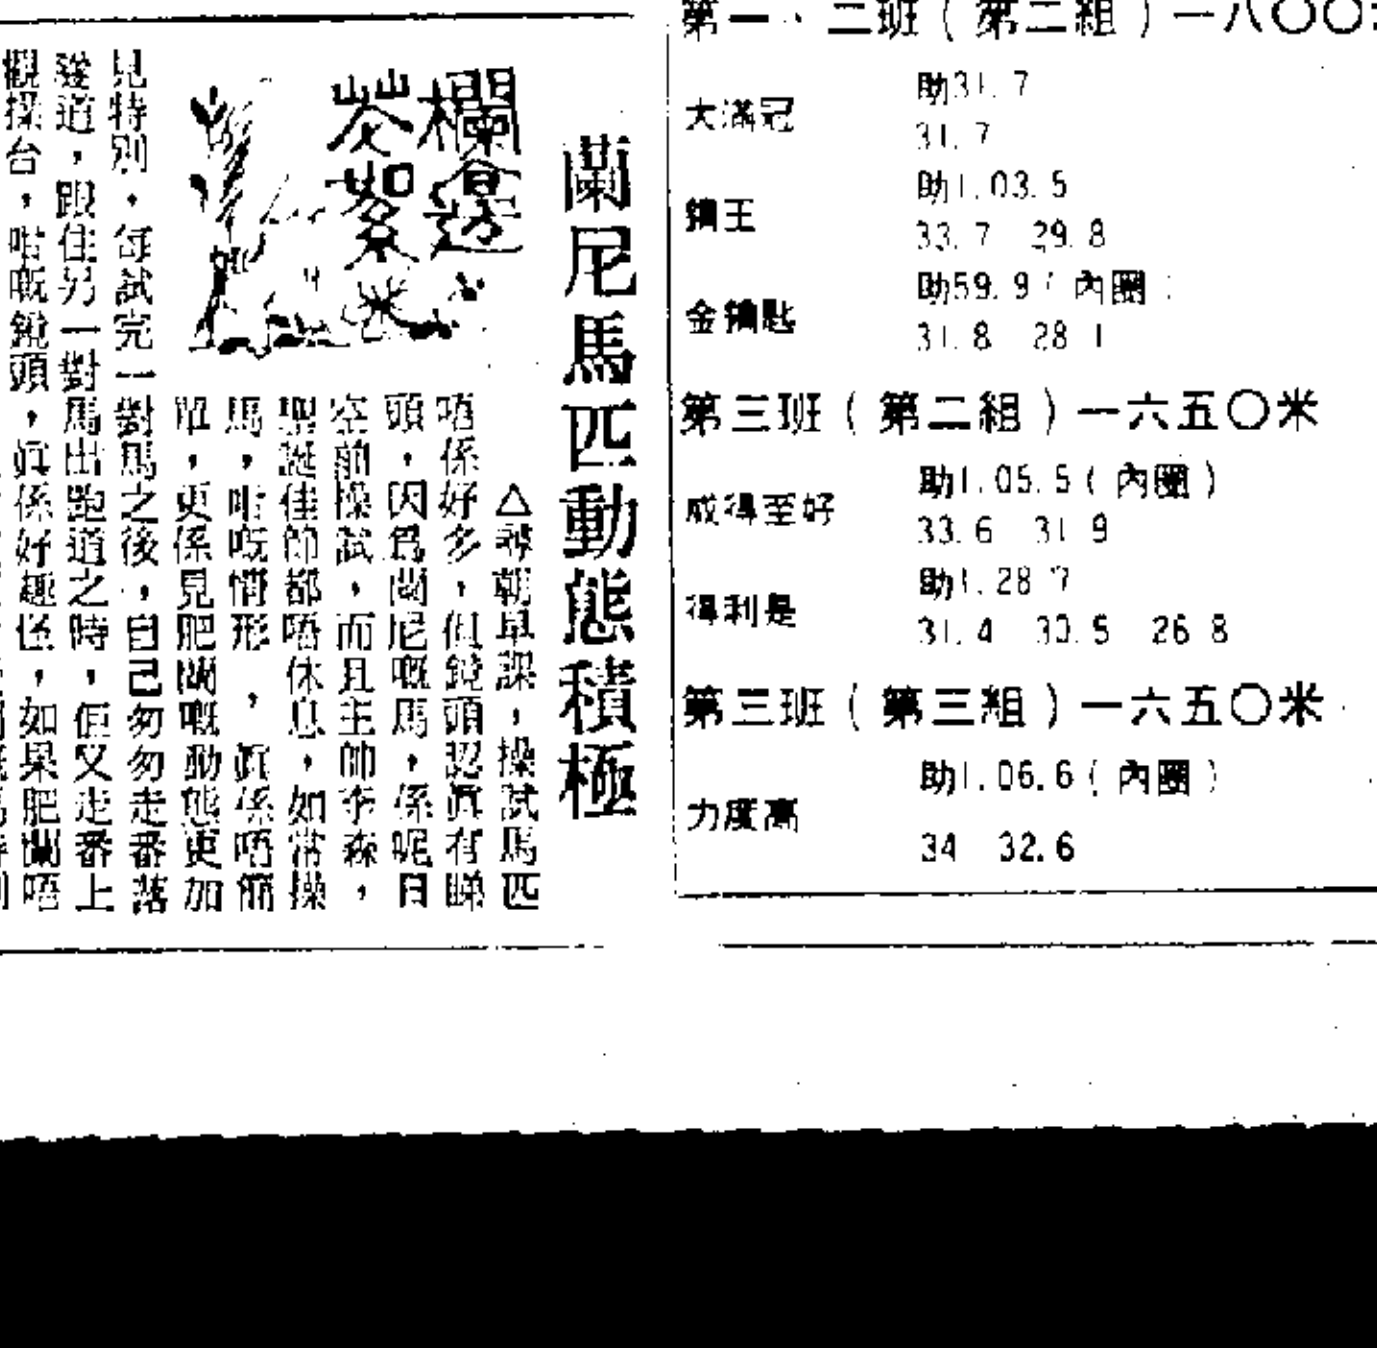 蘭尼馬匹動態積極
欄邊
絮
△尋朝早課，操試馬匹
唔係好多，但鏡頭認眞有睇
頭，因爲蘭尼嘅馬，係呢日
空前操試，而且主帥李森，
聖誕佳節都唔休息，如常操
馬，咁嘅情形，眞係唔簡
單，更係見肥蘭嘅動態更加
見特別，每試完一對馬之後，自己匆匆走番落
隧道，跟住另一對馬出跑道之時，佢又走番上
觀操台，咁嘅鏡頭，眞係好趣怪，如果肥蘭唔
第一、二班（第二組）一八〇〇
大滿冠
助31.7
31.7
鑽王
助1.03.5
33.7 29.8
金鑰匙
助59.9（內圈）
31.8 28.1
第三班（第二組）一六五〇米
威得至好
助1.05.5（內圈）
33.6 31.9
得利是
助1.28.7
31.4 30.5 26.8
第三班（第三組）一六五〇米
力度高
助1.06.6（內圈）
34 32.6